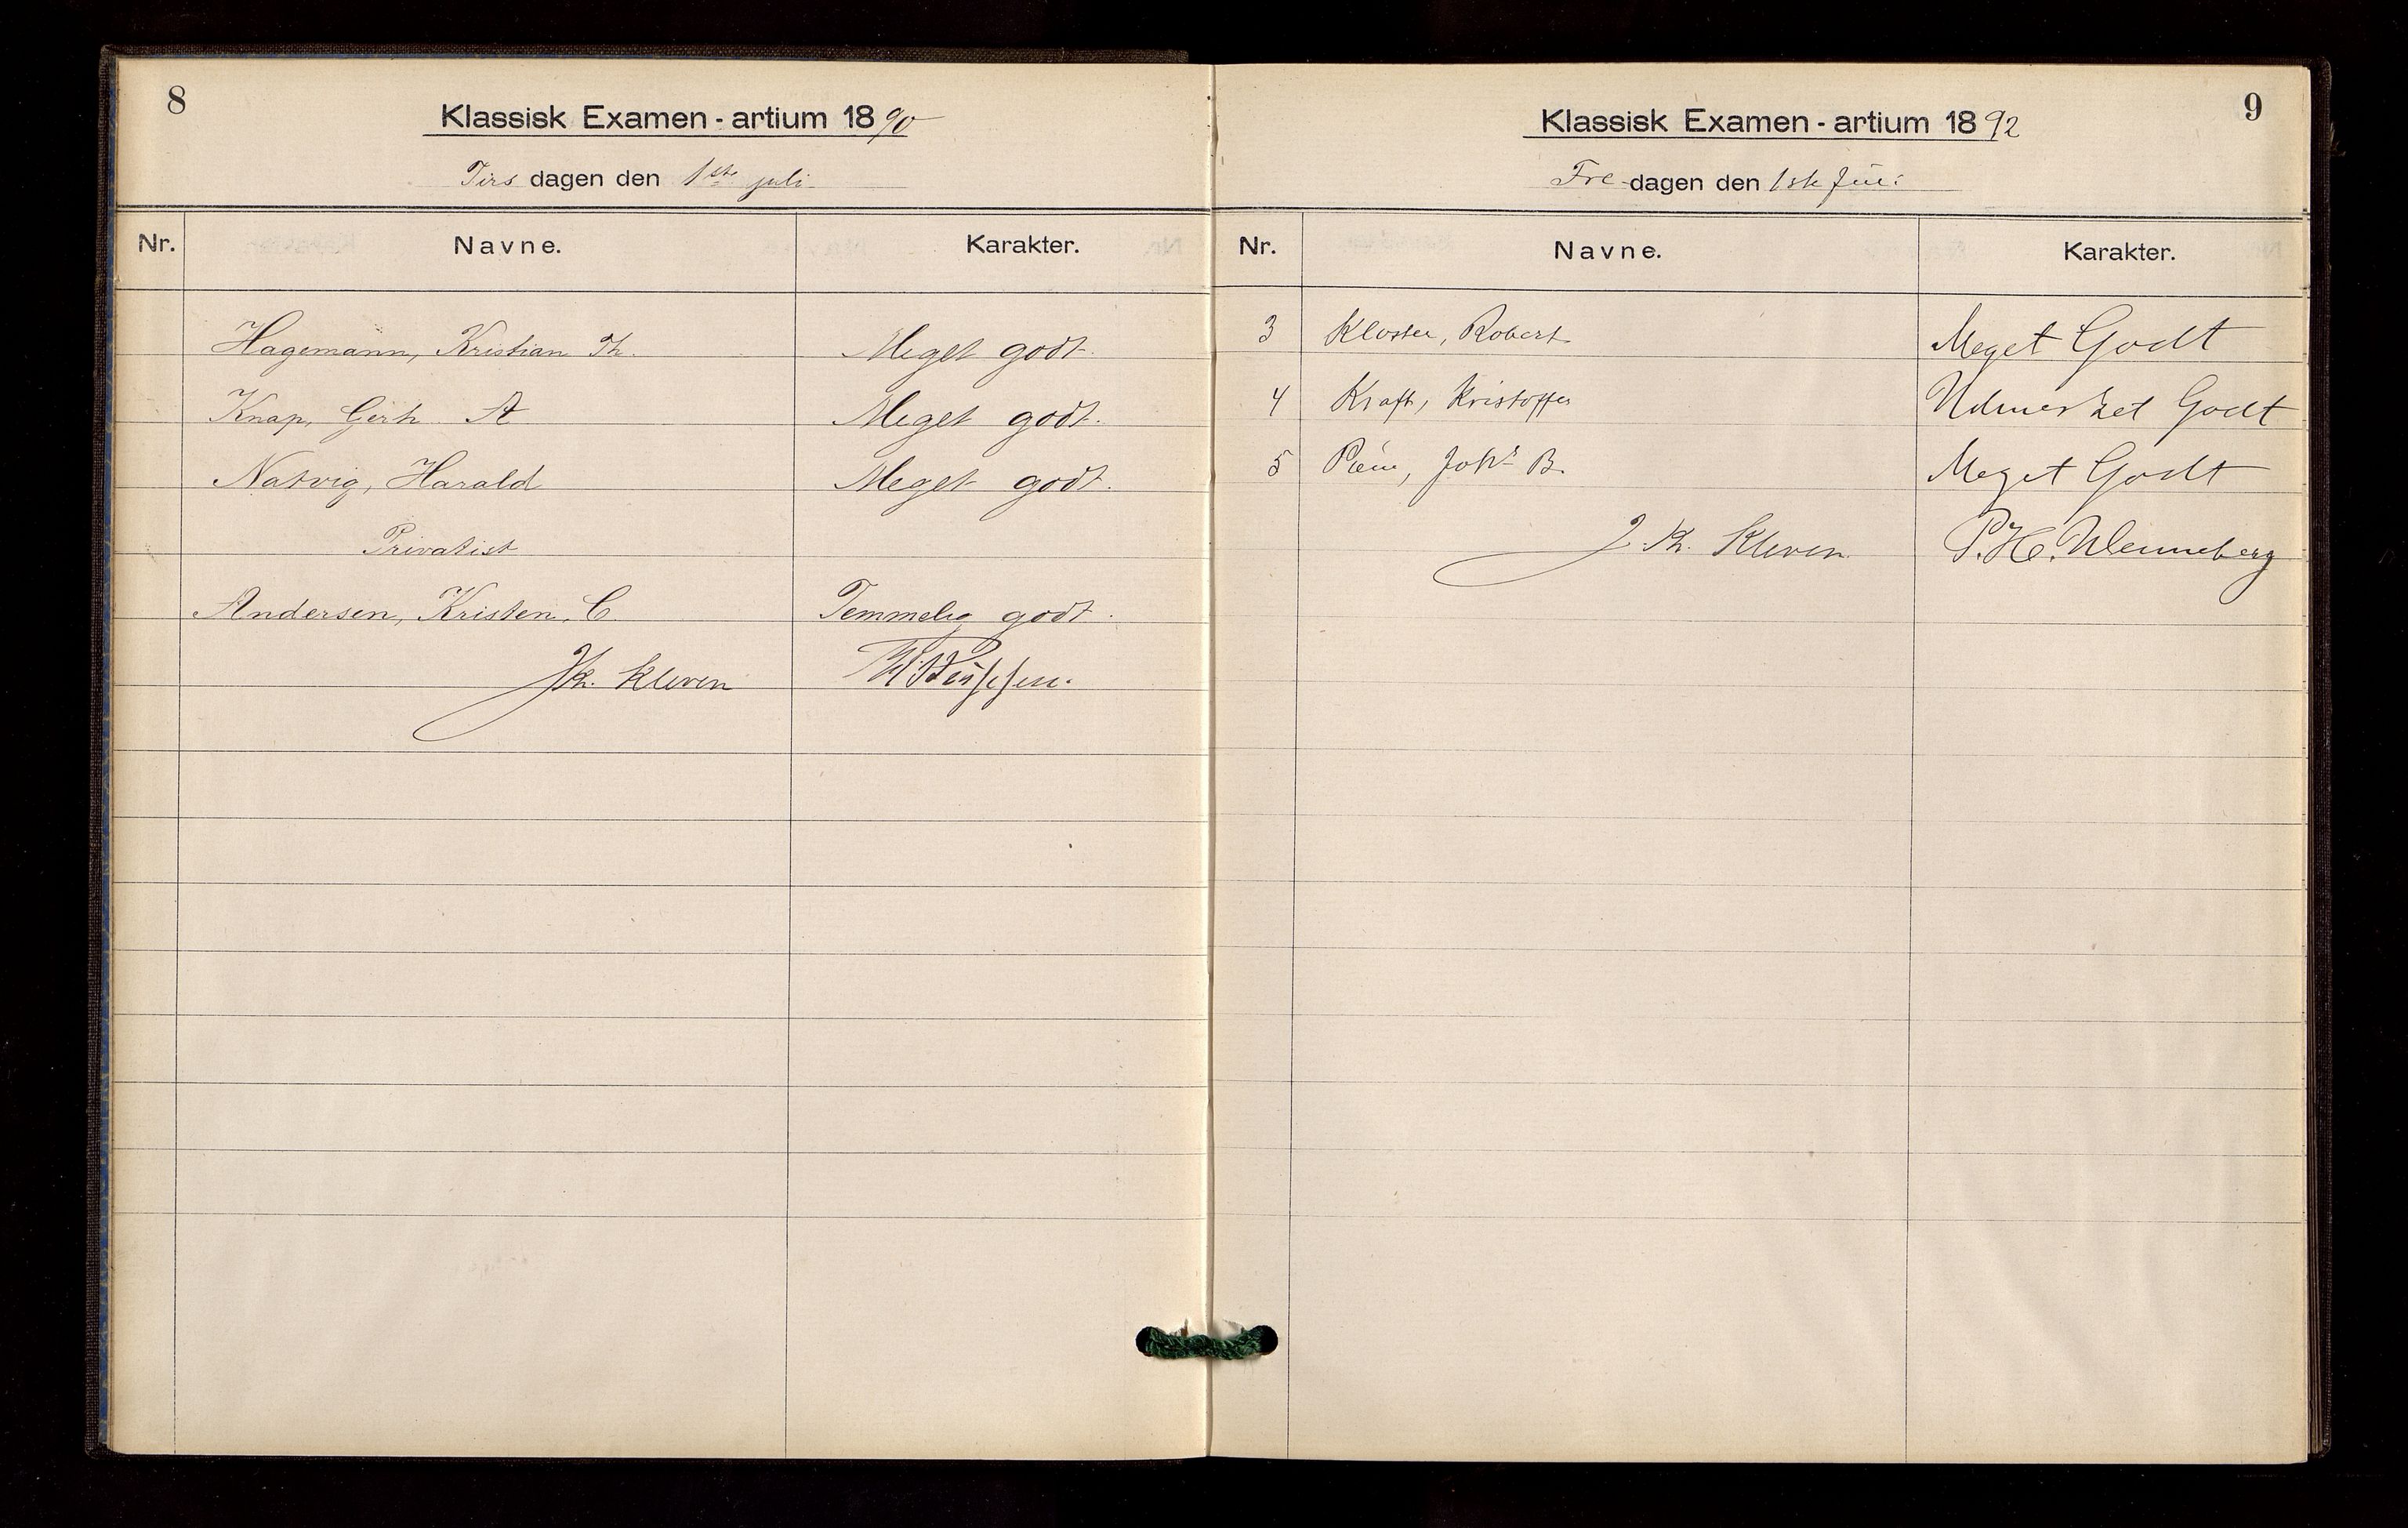 8
Klassisk Examen - artium 1890
Tirsdagen den 1ste juli
Nr. Navne. Karakter.
Hagemann, Kristian Th. Meget godt.
Knap, Gerh. A Meget godt.
Natvig, Harald Meget godt.
Privatist
Andersen, Kristen, C. Temmelig godt.
J. Kr. Kleven
9
Klassisk Examen - artium 1892
Fre-dagen den 1ste Juli
Nr. Navne. Karakter.
3 Kloster, Robert Meget Godt
4 Kraft, Kristoffer Udmerket Godt
5 B. Meget Godt
J. Kr. Kleven P. H. Wenneberg